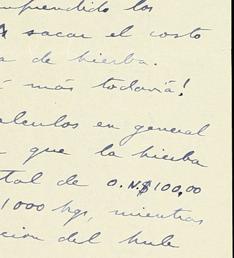 mprendido los
sacar el costo
a de hierba.
más todavía!
alculos en general
que la hierba
tal de O.N$100,00
1000 kgs, mientras
ción del hule